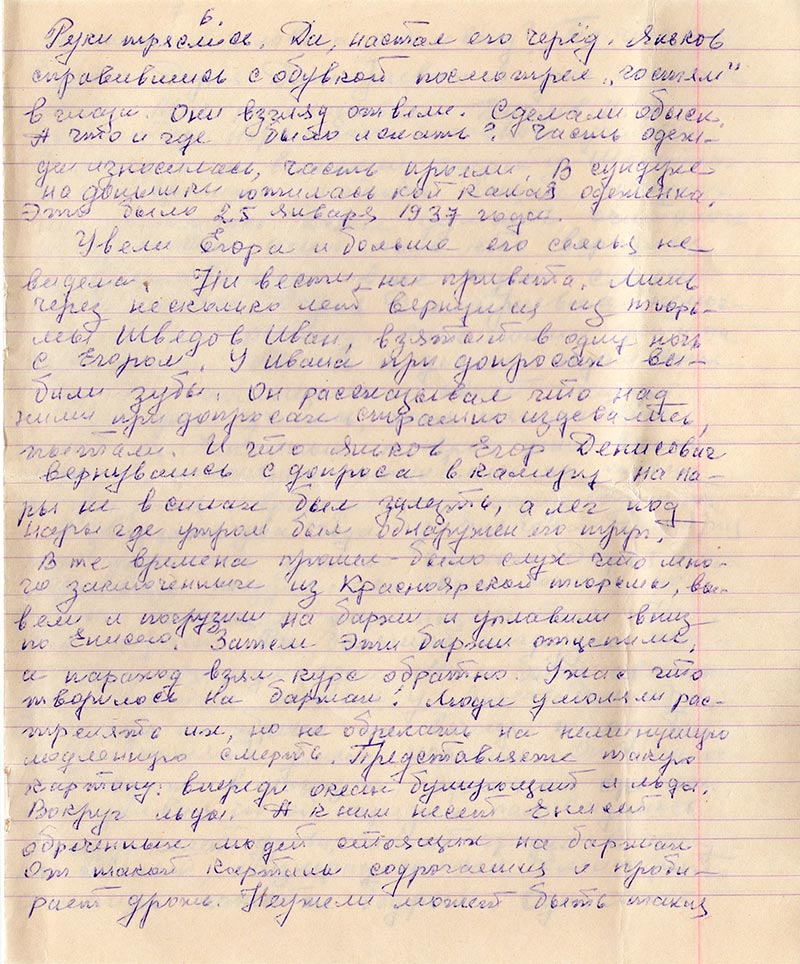 6.
Руки тряслись. Да, настал его черёд. Яшков
справившись с обувкой посмотрел „гостям"
в глаза. Они взгляд отвели. Сделали обыск.
А что и где было искать? Часть одеж-
ды износилась, часть проели. В сундуке
на донышки ютилась кой какая одеженка.
Это было 25 января 1937 года.
Увели Егора и больше его семья не
видела. Ни вести, ни привета. Лишь
через несколько лет вернулся из тюрь-
мы Шведов Иван, взятый в одну ночь
с Егором. У Ивана при допросах вы-
били зубы. Он рассказывал что над
ними при допросах страшно издевались,
пытали. И что Яшков Егор Денисович
вернувшись с допроса в камеру на на-
ры не в силах был залезть, а лег под
нары где утром был обнаружен его труп.
В те времена прошел-было слух что мно-
го заключенных из Красноярской тюрьмы, вы-
вели и погрузили на баржи и уплавили вниз
по Енисею. Затем эти баржи отцепили,
а параход взял курс обратно. Ужас что
творилось на баржах! Люди умоляли рас-
трелять их, но не обрекать на неминуемую
медленную смерть. Представляете такую
картину: впереди океан бушующий и льды.
Вокруг льды. А к ним несет Енисей
обреченных людей стоящих на баржах
От такой картины содрогаешься и проби-
рает дрожь. Неужели может быть такая